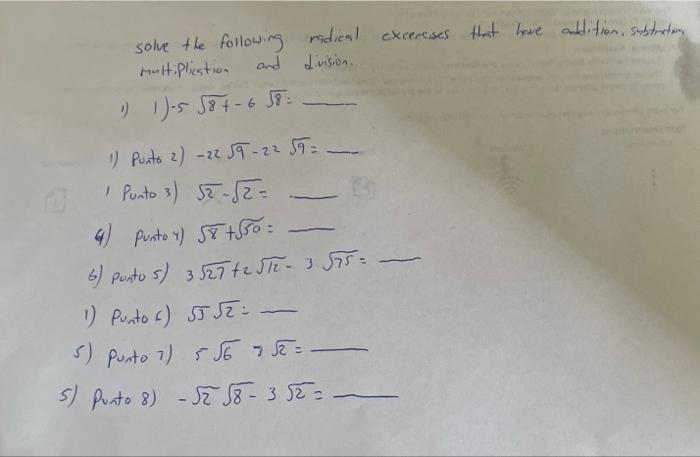 solve the following radical excercises that have addition, subtraction,
multiplication and division.
1) 1) -5 √8 + -6 √8 = ____
1) Punto 2) -22 √9 - 22 √9 = ____
1 Punto 3) √2 - √2 = ____
4) punto 4) √8 + √50 = ____
6) punto 5) 3 √27 + 2 √12 - 3 √75 = ____
1) Punto 6) √5 √2 = ____
5) punto 7) 5 √6 7 √2 = ____
5) Punto 8) - √2 √8 - 3 √2 = ____